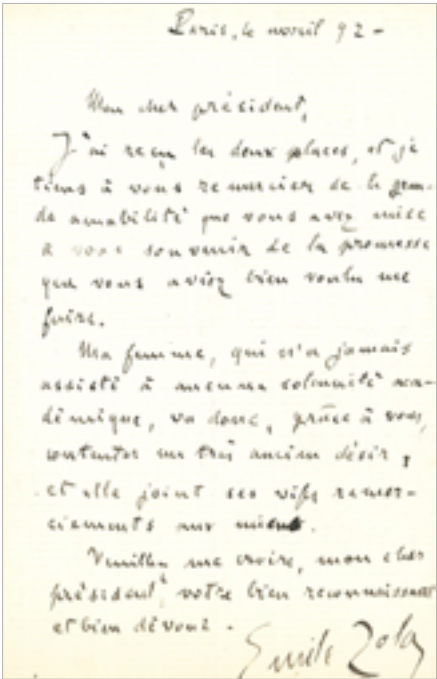 Paris, le avril 92 -
Mon cher président,
J'ai reçu les deux places, et je
tiens à vous remercier de la gran-
de amabilité que vous avez mise
à vous souvenir de la promesse
que vous aviez bien voulu me
faire.
Ma femme, qui n'a jamais
assisté à aucune solennité aca-
démique, va donc, grâce à vous,
contenter un très ancien désir,
et elle joint ses vifs remer-
ciements aux miens.
Veuillez me croire, mon cher
président, votre bien reconnaissant
et bien dévoué -
Emile Zola